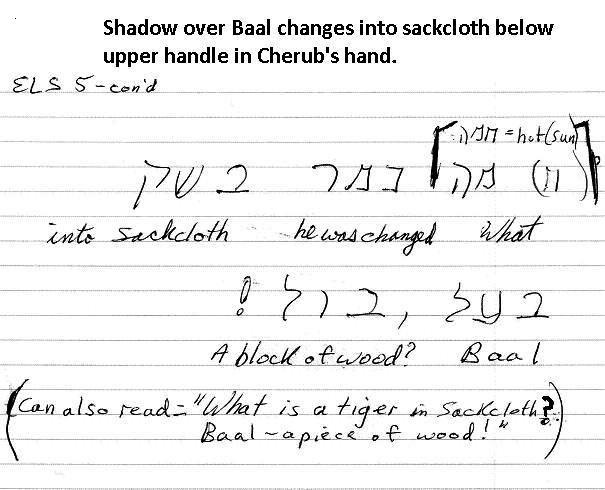 Shadow over Baal changes into sackcloth below
upper handle in Cherub's hand.
ELS 5-con'd
חמה = hot (sun)
(ח) מה נמר בשק
into sackcloth he was changed What
בעל, בול!
A block of wood? Baal
(Can also read = "What is a tiger in Sackcloth?
Baal - a piece of wood!")